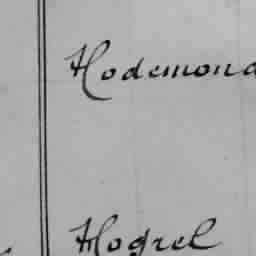 Hodemond
Hogrel